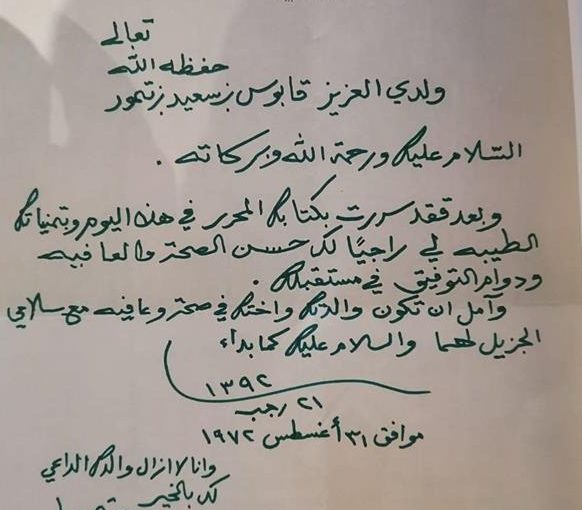 تعالى
حفظه الله
ولدي العزيز قابوس بن سعيد بن تيمور
السلام عليك ورحمة الله وبركاته .
وبعد فقد سررت بكتابك المحرر في هذا اليوم وتمنياتك
الطيبه لي راجيًا لك حسن الصحة والعافيه
ودوام التوفيق في مستقبلك .
وآمل ان تكون والدتك واختك في صحة وعافيه مع سلامي
الجزيل لهما والسلام عليك كما بداء
١٣٩٢
٢١ رجب
موافق ٣١ أغسطس ١٩٧٢
وانا لا ازال والدك الداعي
لك بالخير